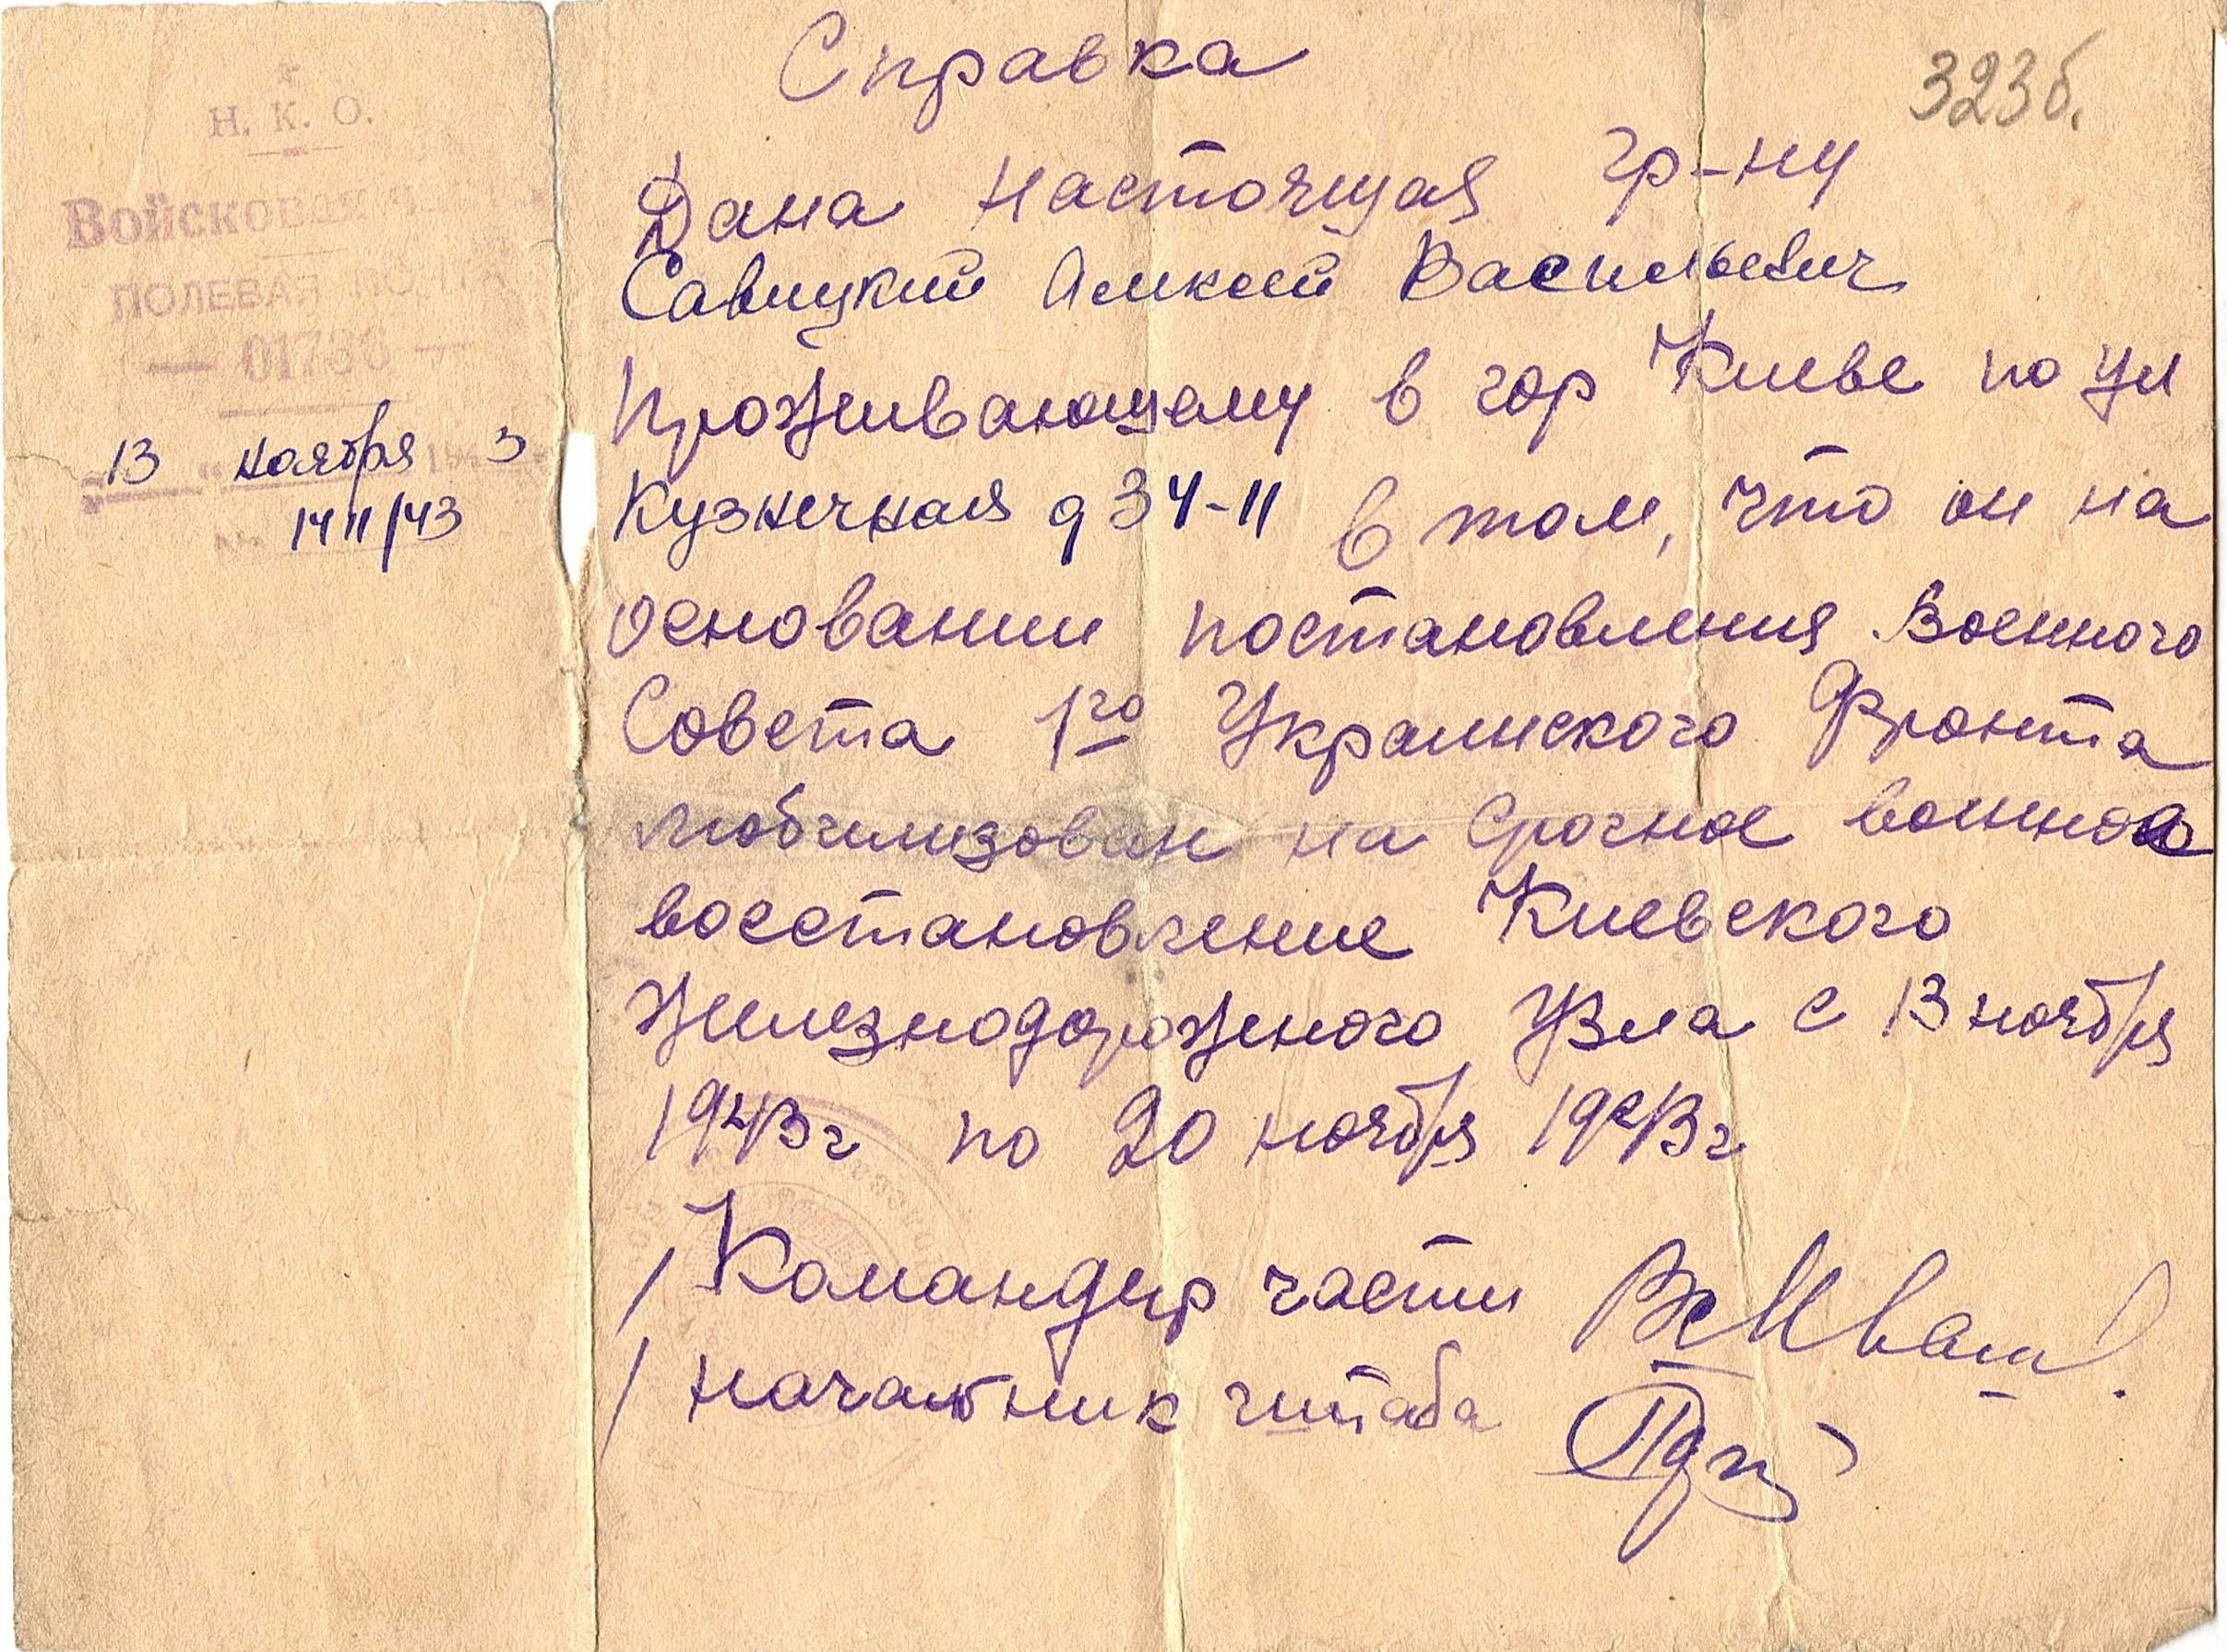 Н. К. О.
Войсковая
ПОЛЕВАЯ
— 01736 —
13 ноября 3
14 11/43
Справка
323б.
Дана настоящая гр-ну
Савицкий Алексей Васильевич
Проживающему в гор Киеве по ул
Кузнечная д 34-11 в том, что он на
основании постановления Военного
Совета 1го Украинского Фронта
мобилизован на срочное военное
восстановление Киевского
Железнодорожного Узла с 13 ноября
1943г по 20 ноября 1943г
/ Командир части
/ Начальник штаба